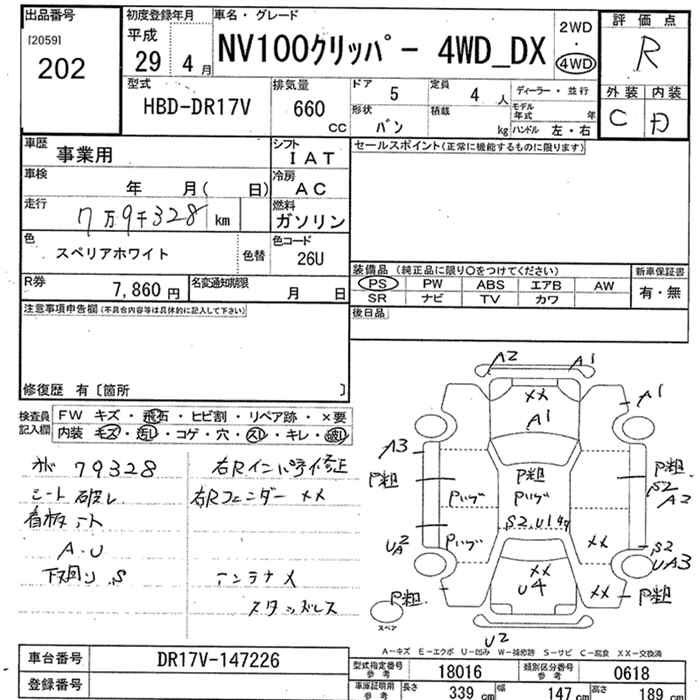 出品番号
[2059]
202
初度登録年月
平成
29 4 月
車名・グレード
NV100クリッパー 4WD_DX
2WD
・
4WD
評価点
R
外装 内装
C D
型式
HBD-DR17V
排気量
660
CC
ドア 5
定員 4 人
形状 バン
積載 kg
ディーラー・並行
モデル年式 年
ハンドル 左・右
車歴 事業用
車検 年 月( 日)
走行 7万9千328 km
色 スペリアホワイト 色替
シフト
IAT
冷房
AC
燃料
ガソリン
色コード
26U
R券 7,860円
名変通知期限 月 日
セールスポイント(正常に機能するものに限ります)
装備品(純正品に限り○をつけてください)
PS PW ABS エアB AW
SR ナビ TV カワ
新車保証書
有・無
後日品
注意事項申告欄(不具合内容等は具体的に記入して下さい)
修復歴 有〔箇所 〕
検査員記入欄
FW キズ・飛石・ヒビ割・リペア跡・×要
内装 キズ・汚レ・コゲ・穴・スレ・キレ・破レ
79328
シート破レ
看板アト
A・U
下廻りS
右Rインパネ修正
右Rフェンダー XX
アンテナX
スタッドレス
A2 A1
XX
A1
A1
A3
P粗
P粗
P粗
S2
A2
Pハゲ
Pハゲ
S2.U1
UA2
Pハゲ
XX
S2
UA3
XX
U4
XX
P粗
P粗
スペア
U2
A-キズ E-エクボ U-凹み W-補修跡 S-サビ C-腐食 XX-交換済
車台番号 DR17V-147226
登録番号
型式指定番号 参考 18016
類別区分番号 参考 0618
車庫証明用 参考 長さ 339 cm 幅 147 cm 高さ 189 cm